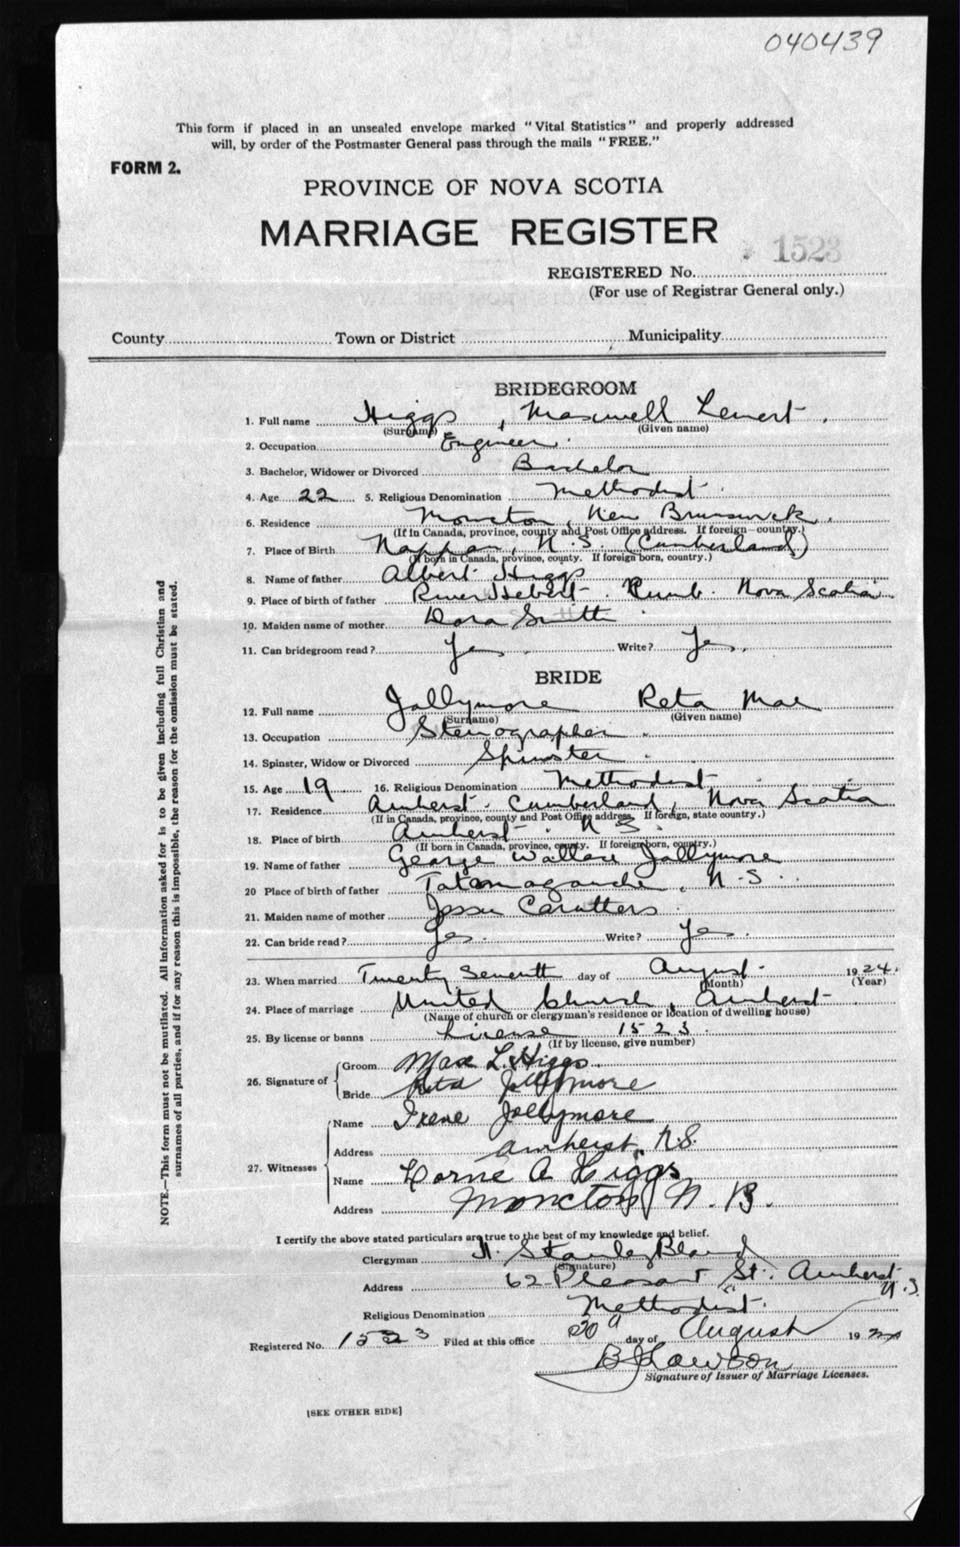 040439
This form if placed in an unsealed envelope marked "Vital Statistics" and properly addressed
will, by order of the Postmaster General pass through the mails "FREE."
FORM 2.
PROVINCE OF NOVA SCOTIA
MARRIAGE REGISTER
1523
REGISTERED No.
(For use of Registrar General only.)
County Town or District Municipality
BRIDEGROOM
1. Full name Higgs, Maxwell
(Surname) (Given name)
2. Occupation Engineer.
3. Bachelor, Widower or Divorced Bachelor
4. Age 22 5. Religious Denomination Methodist
6. Residence Moncton, New Brunswick.
(If in Canada, province, county and Post Office address. If foreign—country.)
7. Place of Birth Nappan, N.S (Cumberland)
(If born in Canada, province, county. If foreign born, country.)
8. Name of father Albert Higgs
9. Place of birth of father River Hebert. Cumb. Nova Scotia
10. Maiden name of mother Dora Smith
11. Can bridegroom read? Yes. Write? Yes.
BRIDE
12. Full name Jollymore Reta Mae
(Surname) (Given name)
13. Occupation Stenographer
14. Spinster, Widow or Divorced Spinster
15. Age 19 16. Religious Denomination Methodist
17. Residence Amherst. Cumberland, Nova Scotia
(If in Canada, province, county and Post Office address. If foreign, state country.)
18. Place of birth Amherst. N.S.
(If born in Canada, province, county. If foreign born, country.)
19. Name of father George Wallace Jollymore
20 Place of birth of father Tatamagouche, N.S.
21. Maiden name of mother Jessie
22. Can bride read? Yes. Write? Yes.
23. When married Twenty Seventh day of August. 1924.
(Month) (Year)
24. Place of marriage United Church, Amherst
(Name of church or clergyman's residence or location of dwelling house)
25. By license or banns License 1523.
(If by license, give number)
26. Signature of Groom Max L. Higgs
Bride Reta Jollymore
27. Witnesses Name Irene Jollymore
Address Amherst, N.S.
Name Lorne A Higgs
Address Moncton, N.B.
I certify the above stated particulars are true to the best of my knowledge and belief.
Clergyman Stanley Bland
(Signature)
Address 62 Pleasant St. Amherst N.S.
Religious Denomination Methodist.
Registered No. 1523 Filed at this office day of August 1924
Lawson
Signature of Issuer of Marriage Licenses.
[SEE OTHER SIDE]
NOTE.—This form must not be mutilated. All information asked for is to be given including full Christian and
surnames of all parties, and if for any reason this is impossible, the reason for the omission must be stated.